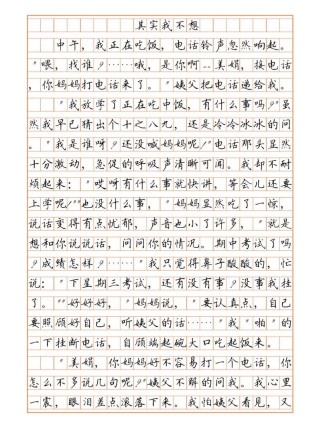 其实我不想
中午，我正在吃饭，电话铃声忽然响起。
“喂，找谁？……哦，是你啊……美娟，接电话
，你妈妈打电话来了。”姨父把电话递给我。
“我放学了正在吃中饭，有什么事吗？”虽
然我早已猜出个十之八九，还是冷冷冰冰的问
。“我是谁呀？还没喊妈妈呢！”电话那头显然
十分激动，急促的呼吸声清晰可闻。我却不耐
烦起来：“哎呀有什么事就快讲，等会儿还要
上学呢！”“也没什么事，”妈妈显然吃了一惊，
说话变得有点忧郁，声音也小了许多，“就是
想和你说说话，问问你的情况。期中考试了吗
？成绩怎样？……”我只觉得鼻子酸酸的，忙
说：“下星期三考试，还有没有事？没事我挂
了。”“好好好，”妈妈说，“要认真点，自己
要照顾好自己，听姨父的话……”我“啪”的
一下挂断电话，自顾端起碗大口吃起饭来。
“美娟，你妈妈好不容易打一个电话，你
怎么不多说几句呢？”姨父不解的问我。我心里
一震，眼泪差点滚落下来。我怕姨父看见，又